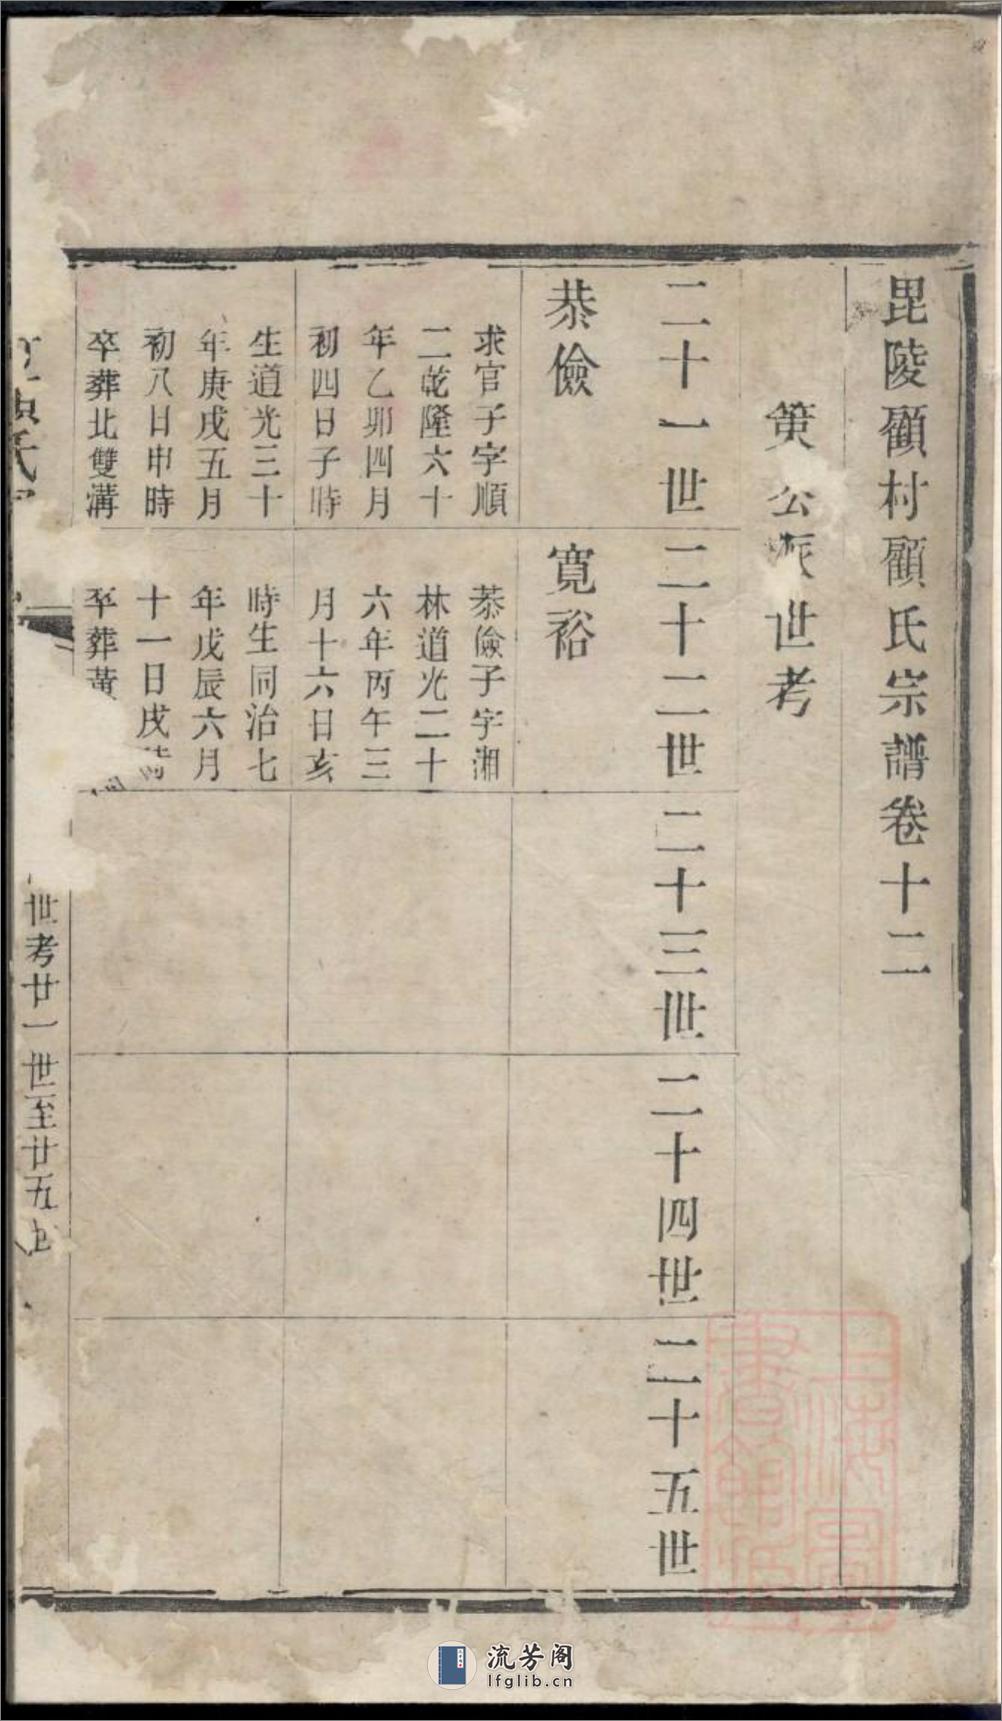 毘陵顧村顧氏宗譜卷十二
公派世考
二十一世
二十二世
二十三世
二十四世
二十五世
恭儉
求官子字順
二乾隆六十
年乙卯四月
初四日子時
生道光三十
年庚戌五月
初八日申時
卒葬北雙溝
寬裕
恭儉子字湘
林道光二十
六年丙午三
月十六日亥
時生同治七
年戊辰六月
十一日戌時
卒葬黃
氏
世考廿一世至廿五世
上海圖書館藏
流芳阁
lfglib.cn